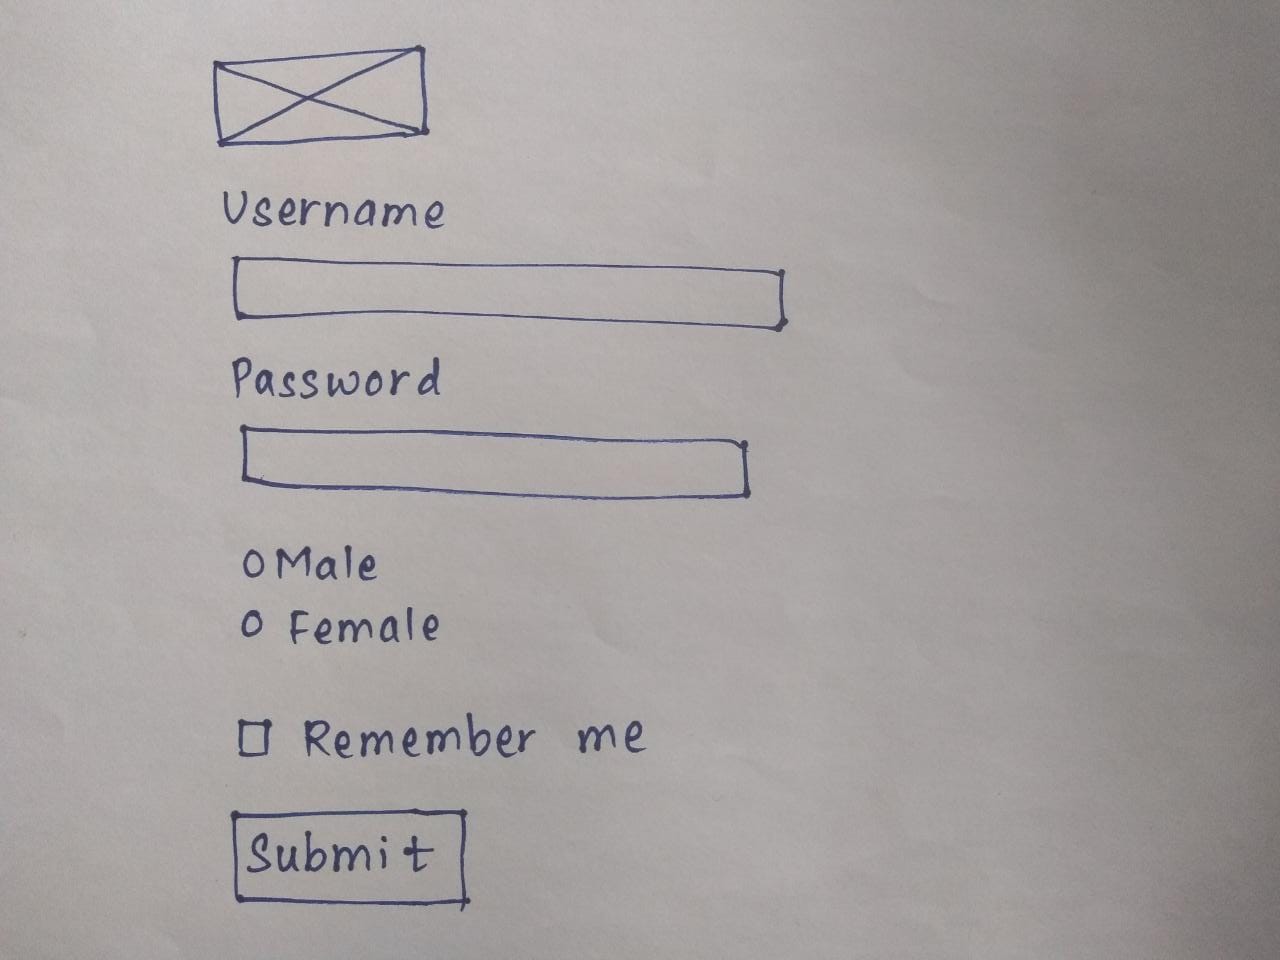 Username
Password
Male
Female
Remember me
Submit